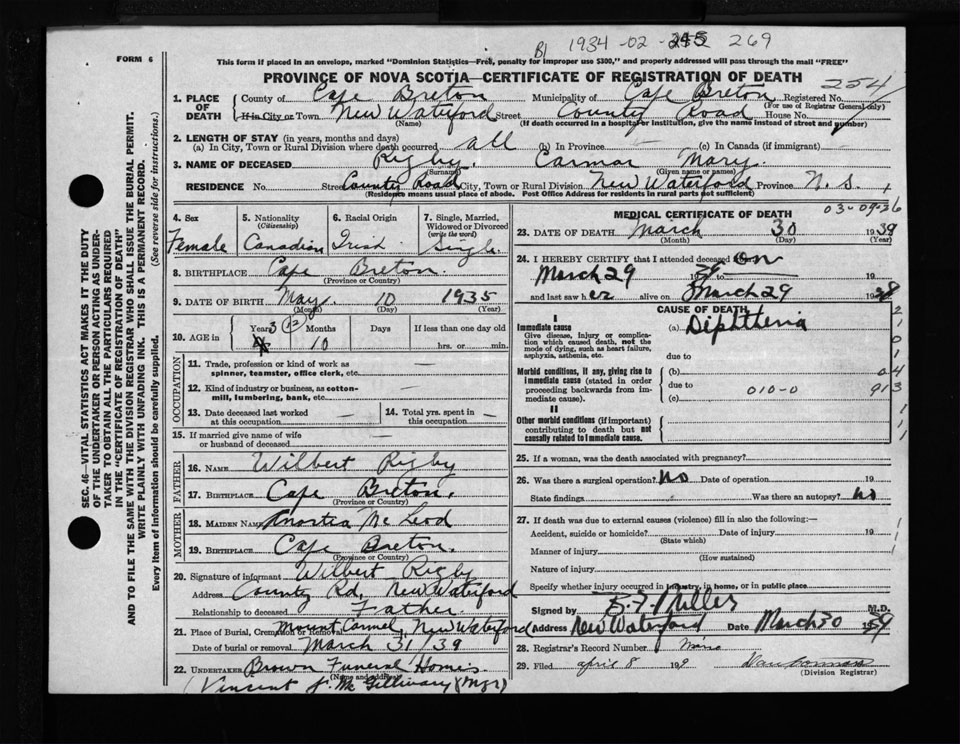 B) 1934-02-245 269
FORM 6
This form if placed in an envelope, marked "Dominion Statistics—Free, penalty for improper use $300," and properly addressed will pass through the mail "FREE"
PROVINCE OF NOVA SCOTIA—CERTIFICATE OF REGISTRATION OF DEATH
254
1. PLACE OF DEATH County of Cape Breton Municipality of Cape Breton Registered No.
(For use of Registrar General only)
If in City or Town New Waterford Street County Road House No.
(Name) (If death occurred in a hospital or institution, give the name instead of street and number)
2. LENGTH OF STAY (in years, months and days)
(a) In City, Town or Rural Division where death occurred all (b) In Province (c) In Canada (if immigrant)
3. NAME OF DECEASED Rigby, Carmar Mary.
(Surname) (Given name or names)
RESIDENCE No. Street County Road City, Town or Rural Division New Waterford Province N. S.,
(Residence means usual place of abode. Post Office Address for residents in rural parts not sufficient)
4. Sex Female
5. Nationality (Citizenship) Canadian
6. Racial Origin Irish
7. Single, Married, Widowed or Divorced (write the word) Single
8. BIRTHPLACE Cape Breton.
(Province or Country)
9. DATE OF BIRTH May. 10 1935
(Month) (Day) (Year)
10. AGE in Years 3 (12) Months 10 Days If less than one day old
hrs. or min.
OCCUPATION
11. Trade, profession or kind of work as spinner, teamster, office clerk, etc. —
12. Kind of industry or business, as cotton-mill, lumbering, bank, etc. —
13. Date deceased last worked at this occupation
14. Total yrs. spent in this occupation
15. If married give name of wife or husband of deceased —
FATHER
16. NAME Wilbert Rigby
17. BIRTHPLACE Cape Breton.
(Province or Country)
MOTHER
18. MAIDEN NAME Mc Leod
19. BIRTHPLACE Cape Breton.
(Province or Country)
20. Signature of informant Wilbert Rigby
Address County Rd, New Waterford
Relationship to deceased Father.
21. Place of Burial, Cremation or Removal Mount Carmel, New Waterford
Date of burial or removal March 31/39
22. UNDERTAKER Brown Funeral Home
(Name and address)
(Vincent J. Mc Gillivary (Mgr)
MEDICAL CERTIFICATE OF DEATH
03-09-36
23. DATE OF DEATH March 30 1939
(Month) (Day) (Year)
24. I HEREBY CERTIFY that I attended deceased on
March 29 39 to 19
and last saw her alive on March 29 19
CAUSE OF DEATH
I
Immediate cause
Give disease, injury or complication which caused death, not the mode of dying, such as heart failure, asphyxia, asthenia, etc.
(a) Diphtheria
due to
Morbid conditions, if any, giving rise to immediate cause (stated in order proceeding backwards from immediate cause).
(b)
due to 010-0
(c)
II
Other morbid conditions (if important) contributing to death but not causally related to immediate cause.
25. If a woman, was the death associated with pregnancy?
26. Was there a surgical operation? No Date of operation 19
State findings Was there an autopsy? no
27. If death was due to external causes (violence) fill in also the following:—
Accident, suicide or homicide? Date of injury 19
(State which)
Manner of injury
(How sustained)
Nature of injury
Specify whether injury occurred in industry, in home, or in public place
Signed by Miller M.D.
Address New Waterford Date March 30 1939
28. Registrar's Record Number
29. Filed april 8 19
(Division Registrar)
SEC. 46—VITAL STATISTICS ACT MAKES IT THE DUTY
OF THE UNDERTAKER OR PERSON ACTING AS UNDER-
TAKER TO OBTAIN ALL THE PARTICULARS REQUIRED
IN THE "CERTIFICATE OF REGISTRATION OF DEATH"
AND TO FILE THE SAME WITH THE DIVISION REGISTRAR WHO SHALL ISSUE THE BURIAL PERMIT.
WRITE PLAINLY WITH UNFADING INK. THIS IS A PERMANENT RECORD.
Every item of information should be carefully supplied. (See reverse side for instructions.)